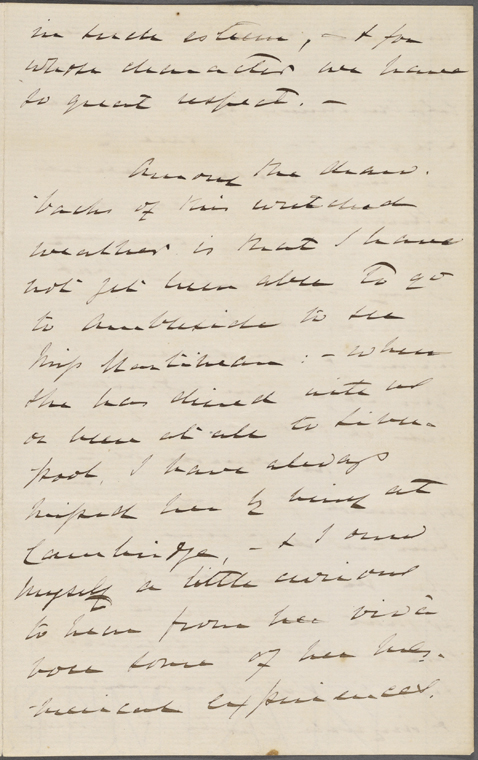 in such esteem, - & for
whose character we have
so great respect. -
Among the draw-
backs of this wretched
weather is that I have
not yet been able to go
to Ambleside to see
Miss Martineau: - when
she has dined with us
or been at all to Liver-
pool, I have always
missed her by being at
Cambridge, - & I own
myself a little curious
to hear from her vivâ
voce some of her mes-
merical experiences.